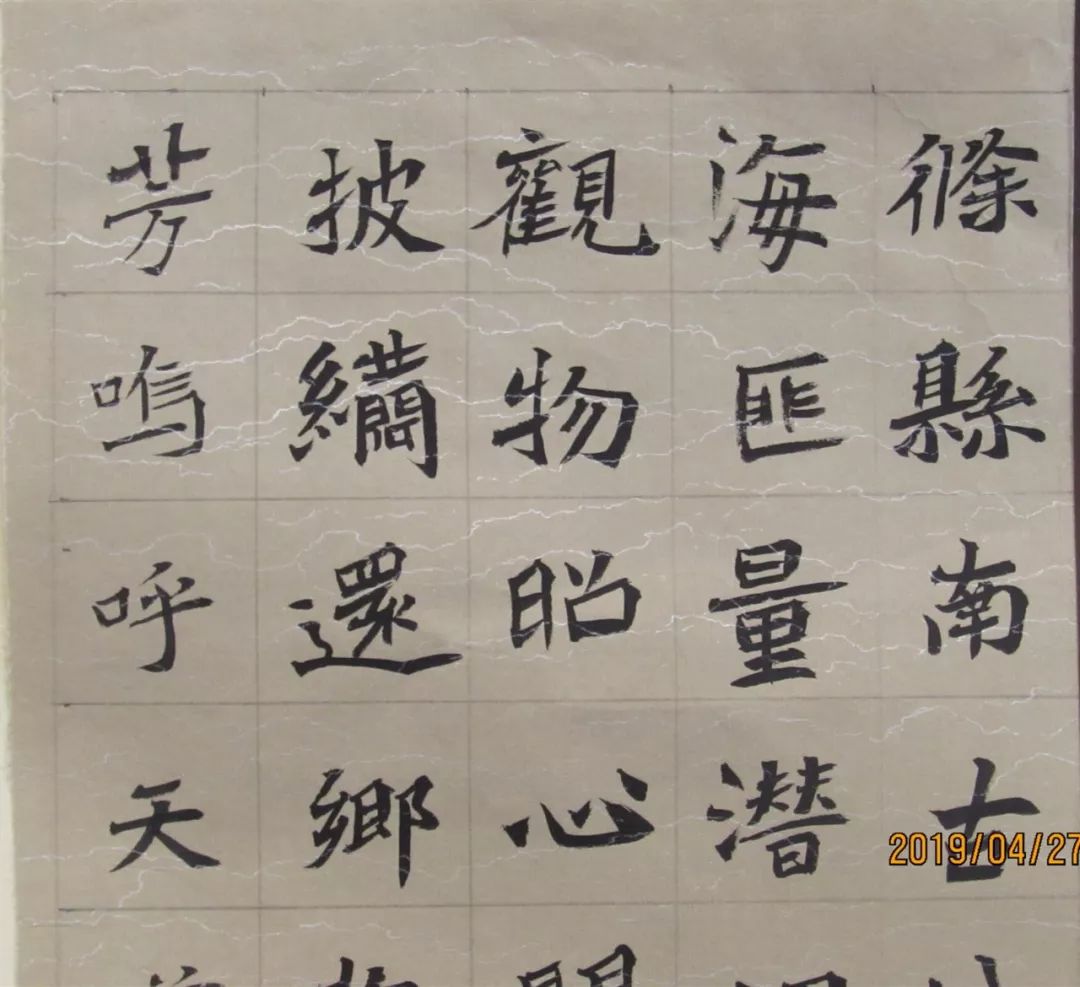 條縣南古
海匪量潛
觀物昭心
披繡還鄉
芳嗚呼天
2019/04/27